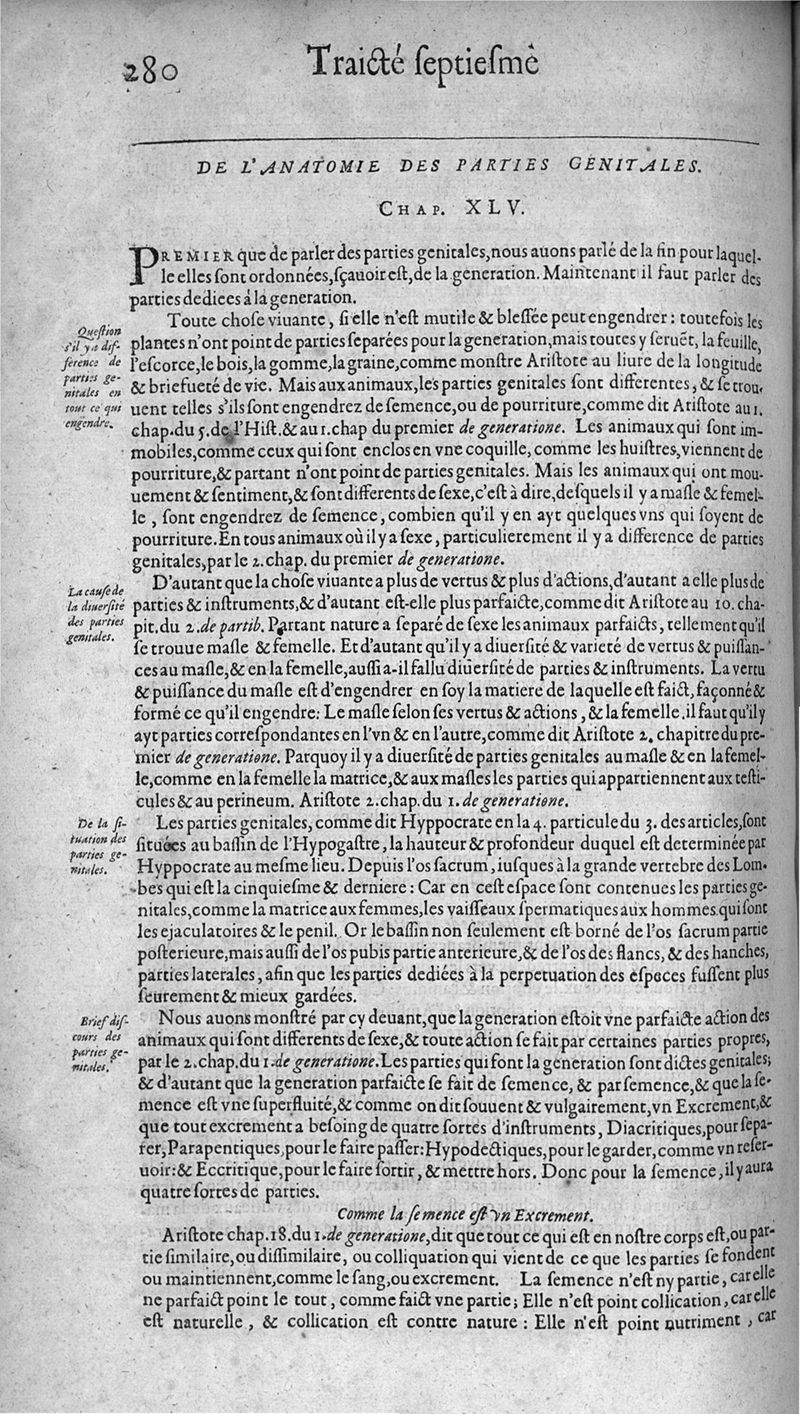 280 Traicté ſeptieſme
DE L'ANATOMIE DES PARTIES GENITALES.
CHAP. XLV.
PREMIER que de parler des parties genitales, nous auons parlé de la fin pour laquel-
le elles ſont ordonnées, ſçauoir eſt, de la generation. Maintenant il faut parler des
parties dediees à la generation.
Queſtion
s'il y a dif-
ference de
parties ge-
nitales en
tout ce qui
engendre.
Toute choſe viuante, ſi elle n'eſt mutile & bleſſée peut engendrer: toutefois les
plantes n'ont point de parties ſeparées pour la generation, mais toutes y ſeruẽt, la feuille,
l'eſcorce, le bois, la gomme, la graine, comme monſtre Ariſtote au liure de la longitude
& briefueté de vie. Mais aux animaux, les parties genitales ſont differentes, & ſe trou-
uent telles s'ils ſont engendrez de ſemence, ou de pourriture, comme dit Ariſtote au 1.
chap. du 5. de l'Hiſt. & au 1. chap du premier de generatione. Les animaux qui ſont im-
mobiles, comme ceux qui ſont enclos en vne coquille, comme les huiſtres, viennent de
pourriture, & partant n'ont point de parties genitales. Mais les animaux qui ont mou-
uement & ſentiment, & ſont differents de ſexe, c'eſt à dire, deſquels il y a maſle & femel-
le, ſont engendrez de ſemence, combien qu'il y en ayt quelques vns qui ſoyent de
pourriture. En tous animaux où il y a ſexe, particulierement il y a difference de parties
genitales, par le 2. chap. du premier de generatione.
La cauſe de
la diuerſité
des parties
genitales.
D'autant que la choſe viuante a plus de vertus & plus d'actions, d'autant a elle plus de
parties & inſtruments, & d'autant eſt-elle plus parfaicte, comme dit Ariſtote au 10. cha-
pit. du 2. de partib. Partant nature a ſeparé de ſexe les animaux parfaicts, tellement qu'il
ſe trouue maſle & femelle. Et d'autant qu'il y a diuerſité & varieté de vertus & puiſſan-
ces au maſle, & en la femelle, auſſi a-il fallu diuerſité de parties & inſtruments. La vertu
& puiſſance du maſle eſt d'engendrer en ſoy la matiere de laquelle eſt faict, façonné &
formé ce qu'il engendre: Le maſle ſelon ſes vertus & actions, & la femelle. il faut qu'il y
ayt parties correſpondantes en l'vn & en l'autre, comme dit Ariſtote 2. chapitre du pre-
mier de generatione. Parquoy il y a diuerſité de parties genitales au maſle & en la femel-
le, comme en la femelle la matrice, & aux maſles les parties qui appartiennent aux teſti-
cules & au perineum. Ariſtote 2. chap. du 1. de generatione.
De la ſi-
tuation des
parties ge-
nitales.
Les parties genitales, comme dit Hyppocrate en la 4. particule du 3. des articles, ſont
ſituées au baſſin de l'Hypogaſtre, la hauteur & profondeur duquel eſt determinée par
Hyppocrate au meſme lieu. Depuis l'os ſacrum, iuſques à la grande vertebre des Lom-
bes qui eſt la cinquieſme & derniere: Car en ceſt eſpace ſont contenues les parties ge-
nitales, comme la matrice aux femmes, les vaiſſeaux ſpermatiques aux hommes qui ſont
les ejaculatoires & le penil. Or le baſſin non ſeulement eſt borné de l'os ſacrum partie
poſterieure, mais auſſi de l'os pubis partie anterieure, & de l'os des flancs, & des hanches,
parties laterales, afin que les parties dediées à la perpetuation des eſpeces fuſſent plus
ſeurement & mieux gardées.
Brief diſ-
cours des
parties ge-
nitales.
Nous auons monſtré par cy deuant, que la generation eſtoit vne parfaicte action des
animaux qui ſont differents de ſexe, & toute action ſe fait par certaines parties propres,
par le 2. chap. du 1. de generatione. Les parties qui font la generation ſont dictes genitales;
& d'autant que la generation parfaicte ſe fait de ſemence, & par ſemence, & que la ſe-
mence eſt vne ſuperfluité, & comme on dit ſouuent & vulgairement, vn Excrement, &
que tout excrement a beſoing de quatre ſortes d'inſtruments, Diacritiques, pour ſepa-
rer, Parapentiques, pour le faire paſſer: Hypodectiques, pour le garder, comme vn reſer-
uoir: & Eccritique, pour le faire ſortir, & mettre hors. Donc pour la ſemence, il y aura
quatre ſortes de parties.
Comme la ſemence eſt vn Excrement.
Ariſtote chap. 18. du 1. de generatione, dit que tout ce qui eſt en noſtre corps eſt, ou par-
tie ſimilaire, ou diſſimilaire, ou colliquation qui vient de ce que les parties ſe fondent
ou maintiennent, comme le ſang, ou excrement. La ſemence n'eſt ny partie, car elle
ne parfaict point le tout, comme faict vne partie; Elle n'eſt point collication, car elle
eſt naturelle, & collication eſt contre nature: Elle n'eſt point nutriment, car